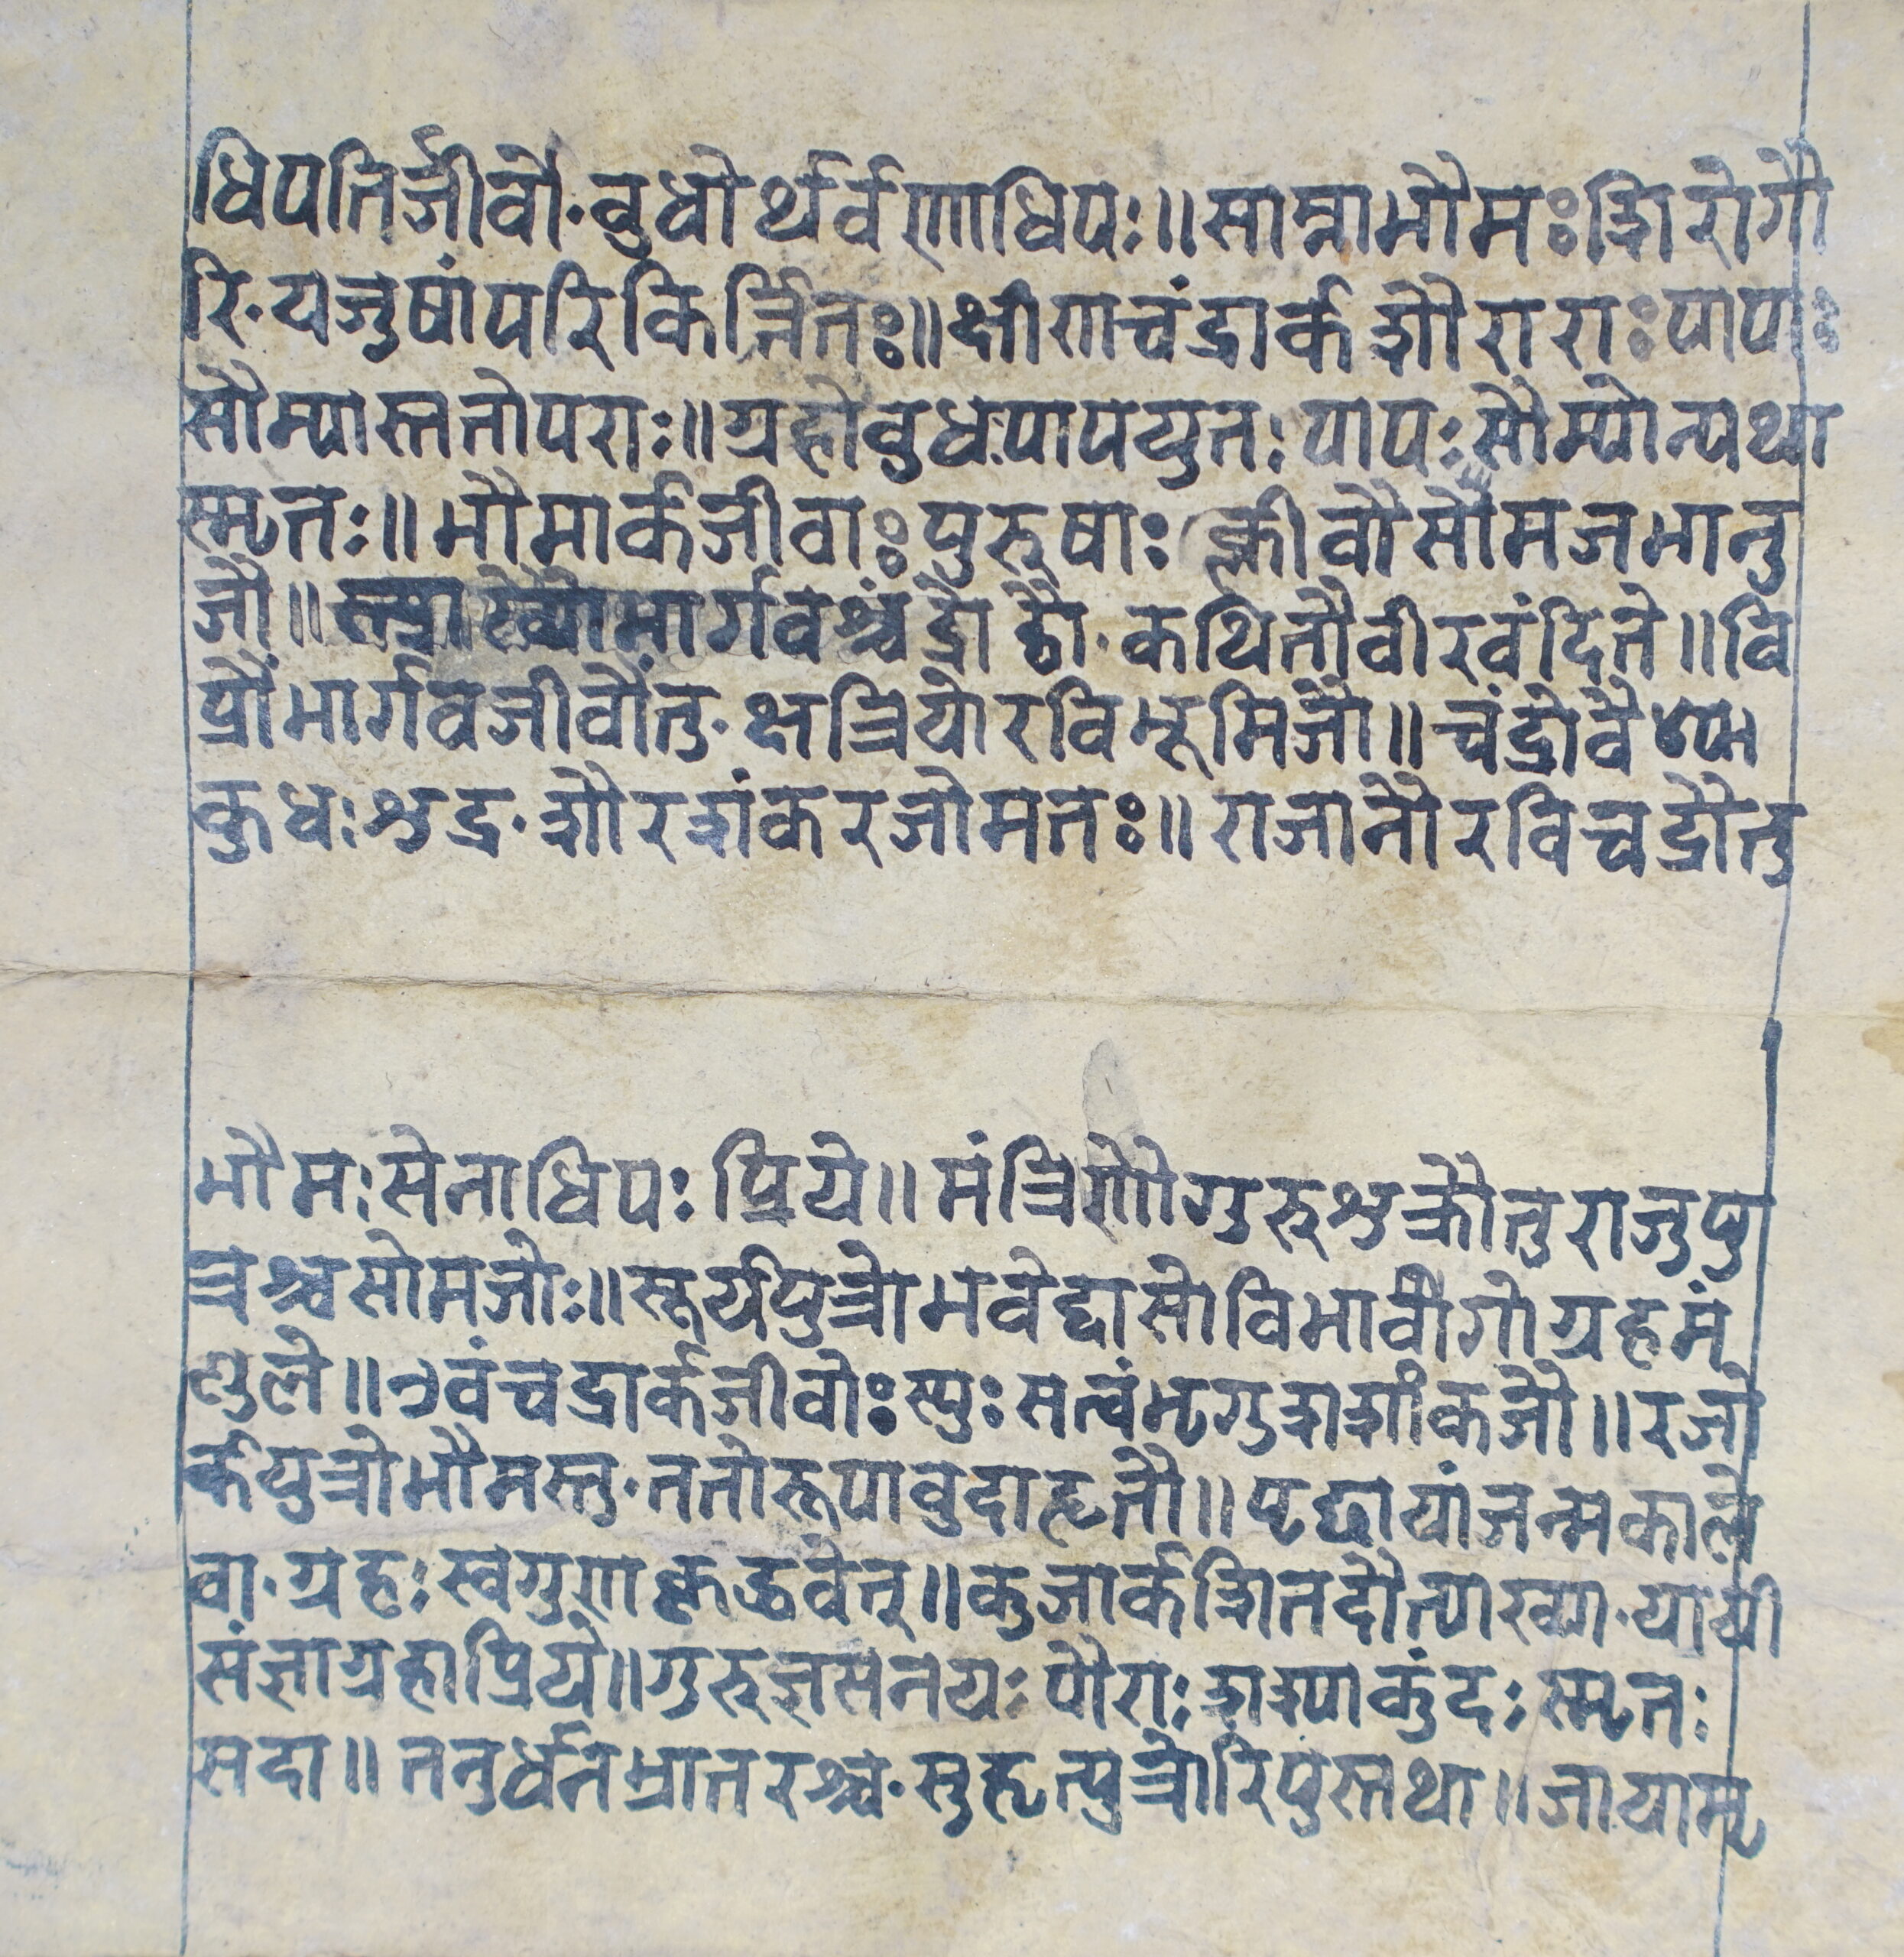 धिपतिर्जीवौ·वुधोर्थर्वणाधिपः॥साम्नाभौमःशिरोगौ
रि·यजुषांपरिकिर्त्तितः॥क्षीणचंद्रार्कशौराराःपापाः
सौम्यास्ततोपराः॥ग्रहोवुधःपापयुतःपापःसौम्योन्यथा
स्मृतः॥भौमार्कजीवाःपुरुषाःक्लीवौसोमजभानु
जौ॥भार्गवश्चंद्रौ·कथितौवीरवंदिते॥वि
प्रौभार्गवजीवौतु·क्षत्रियोरविभूमिजौ॥चंद्रोवै
वुधःश्रुद्र·शौरशंकरजोमतः॥राजानौरविचद्रौतु
भौमःसेनाधिपःप्रिये॥मंत्रिणौगुरुश्रुक्रौतुराजुपु
त्रश्चसोमजोः॥सूर्यपुत्रोभवेद्दासोविभावीगोग्रहमं
ण्डले॥एवंचद्रार्कजीवोःस्युःसत्वंभृगुशशांकजौ॥रजो
र्कपुत्रोभौमस्तु·ततोरूपावुदाहृतौ॥पृछायांजन्मकाले
वा·ग्रहःस्वगुणकृद्भवेत्॥कुजार्कशितदौत्याख्या·यायी
संज्ञाग्रहाप्रिये॥गुरुज्ञसनयःपौराःशश्याकुंदःस्मृतः
सदा॥तनुर्धनभ्रातरश्च·सुहृत्पुत्रोरिपुस्तथा॥जायामृ